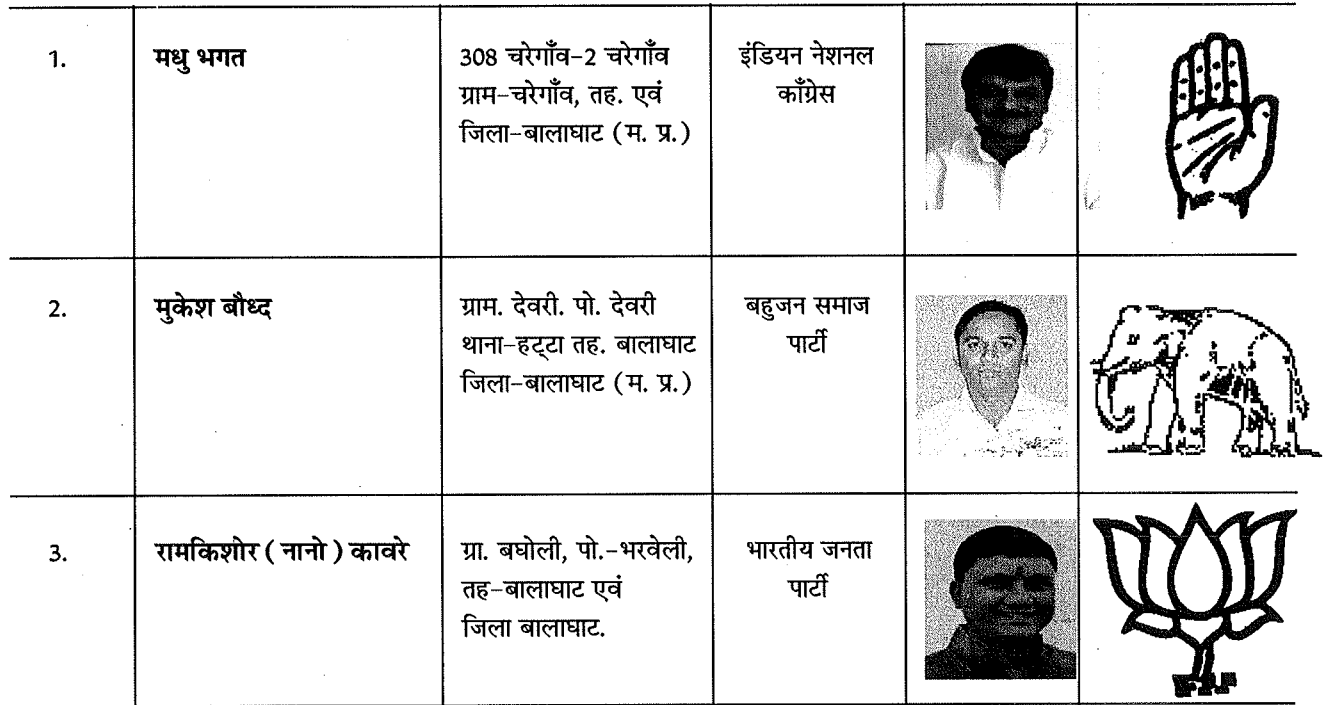 1.
मधु भगत
308 चरेगाँव-2 चरेगाँव
ग्राम-चरेगाँव, तह. एवं
जिला-बालाघाट (म. प्र.)
इंडियन नेशनल
काँग्रेस
2.
मुकेश बौध्द
ग्राम. देवरी. पो. देवरी
थाना-हट्टा तह. बालाघाट
जिला-बालाघाट (म. प्र.)
बहुजन समाज
पार्टी
3.
रामकिशोर ( नानो ) कावरे
ग्रा. बघोली, पो.-भरवेली,
तह-बालाघाट एवं
जिला बालाघाट.
भारतीय जनता
पार्टी